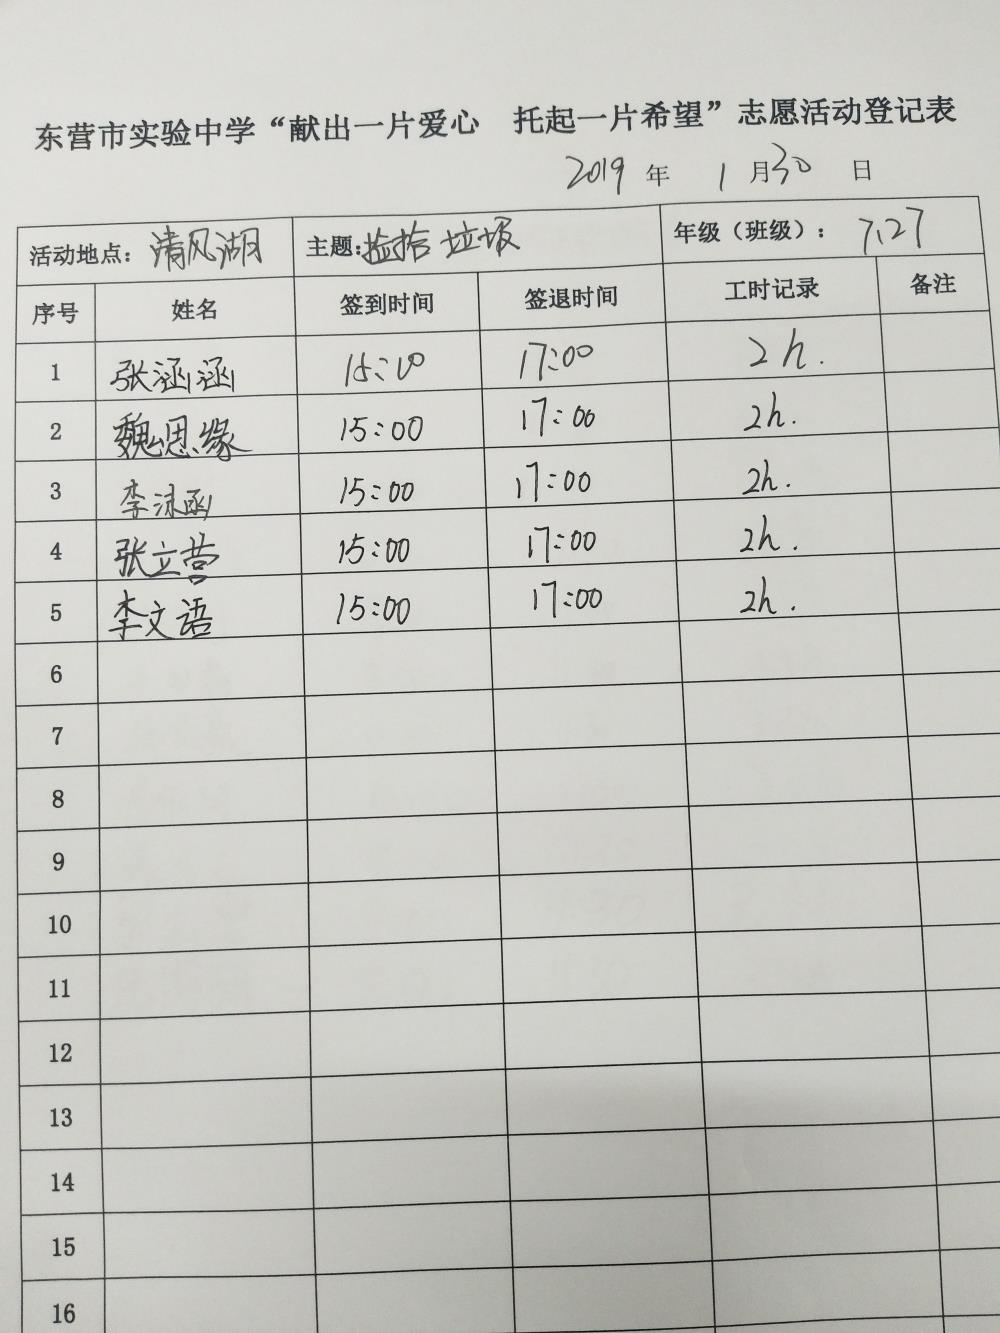 东营市实验中学“献出一片爱心 托起一片希望”志愿活动登记表
2019 年 1 月 30 日
活动地点：清风湖 主题：捡拾垃圾 年级（班级）：7.27
序号 姓名 签到时间 签退时间 工时记录 备注
1 张涵涵 15:00 17:00 2h.
2 魏思缘 15:00 17:00 2h.
3 李沫函 15:00 17:00 2h.
4 张立营 15:00 17:00 2h.
5 李文语 15:00 17:00 2h.
6
7
8
9
10
11
12
13
14
15
16